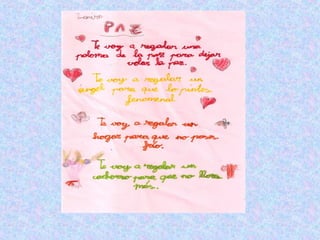 Laura
PAZ
Te voy a regalar una
paloma de la paz para dejar
volar la paz.
Te voy a regalar un
ángel para que lo pintes
fenomenal.
Te voy a regalar un
hogar para que no pases
frío.
Te voy a regalar un
cachorro para que no llores
más.